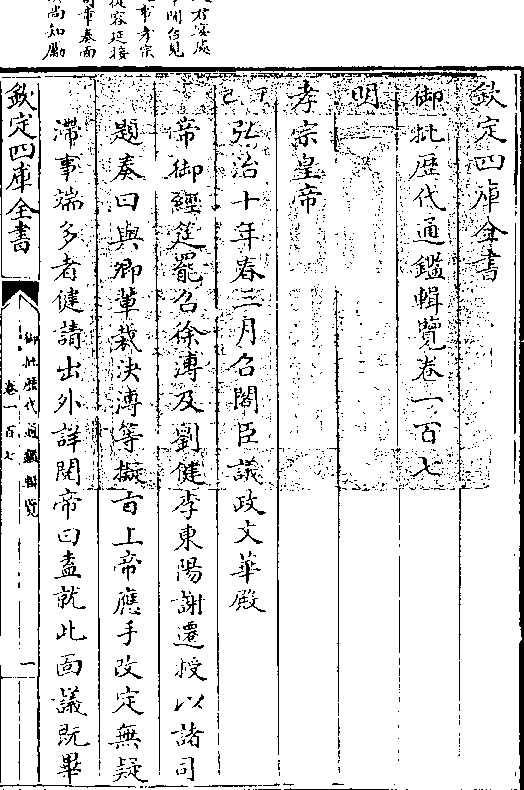 欽定四庫全書
御批歴代通鑑輯覽卷一百七
明
孝宗皇帝
丁巳
弘治十年春三月召閣臣議政文華殿
帝御經筵罷召徐溥及劉健李東陽謝遷授以諸司
題奏曰與卿輩裁決溥等擬旨上帝應手改定無疑
滯事端多者健請出外詳閱帝曰盍就此面議既畢
欽定四庫全書
御批歴代通鑑輯覽
卷一百七
一
從容延接
尚知勵